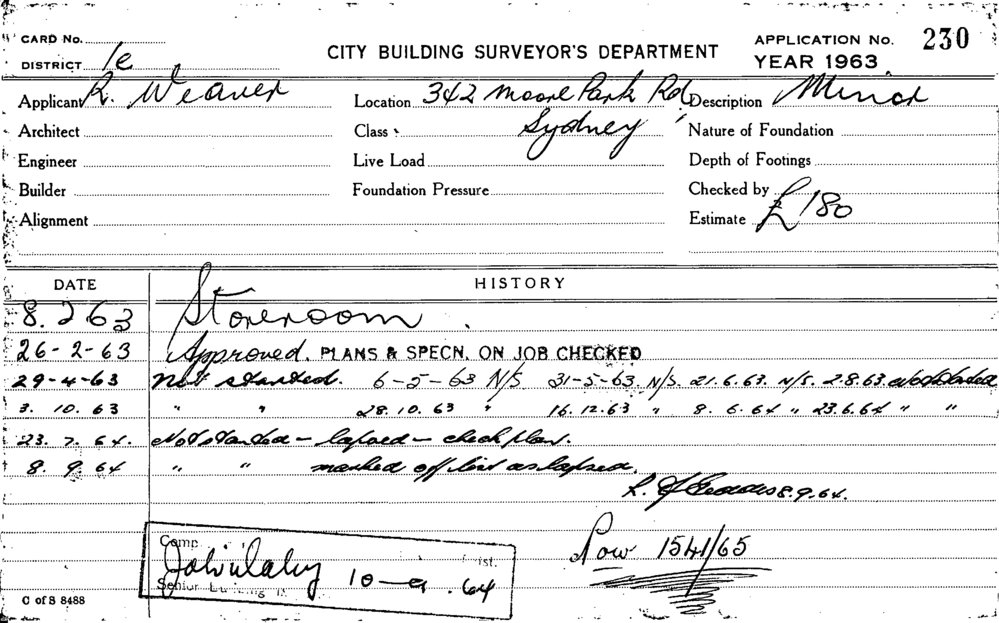 CARD No.
DISTRICT 1e
CITY BUILDING SURVEYOR'S DEPARTMENT
APPLICATION No. 230
YEAR 1963
Applicant R. Weaver
Location 342 Moore Park Rd
Sydney
Description Minor
Architect
Class
Nature of Foundation
Engineer
Live Load
Depth of Footings
Builder
Foundation Pressure
Checked by
Alignment
Estimate £180
DATE HISTORY
8. 2 63 Storeroom.
26-2-63 Approved. PLANS & SPECN. ON JOB CHECKED
29-4-63 Not started. 6-5-63 N/S. 31-5-63. N/S. 21.6.63. N/S. 2.8.63. Not Started
3. 10. 63 " " 28.10.63 " 16.12.63 " 8.6.64 " 23.6.64 " "
23. 7. 64. Not Started - lapsed - check plan.
8. 9. 64 " " marked off list as lapsed.
8.9.64.
Now 1541/65
Comp
10-9.64
Senior
C of S 8488